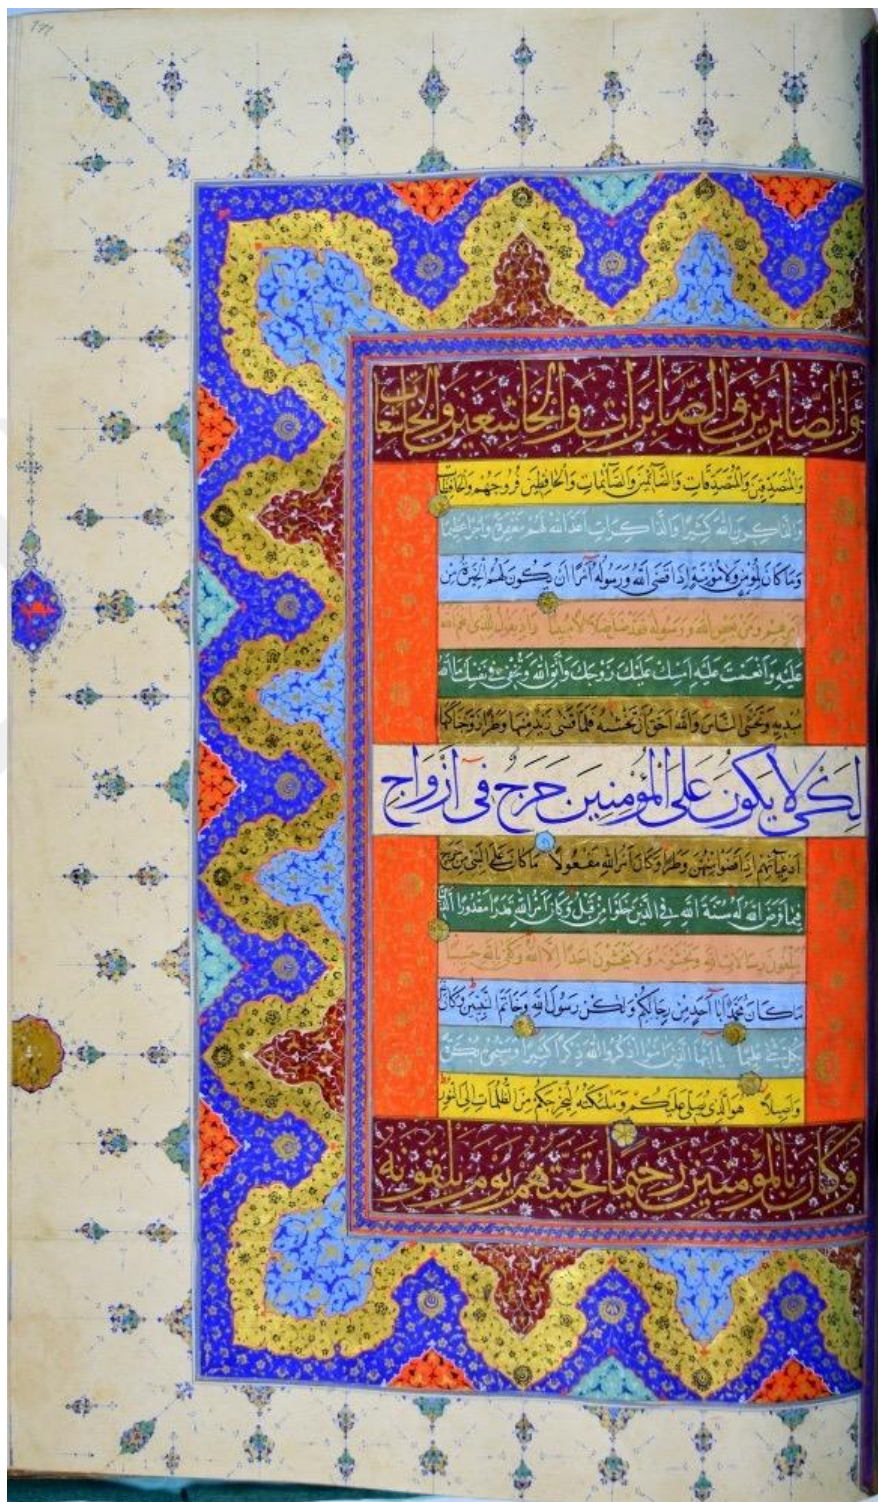 وَالصَّابِرِينَ وَالصَّابِرَاتِ وَالْخَاشِعِينَ وَالْخَاشِعَاتِ
وَالْمُتَصَدِّقِينَ وَالْمُتَصَدِّقَاتِ وَالصَّآئِمِينَ وَالصَّآئِمَاتِ وَالْحَافِظِينَ فُرُوجَهُمْ وَالْحَافِظَاتِ
وَالذَّاكِرِينَ اللهَ كَثِيرًا وَالذَّاكِرَاتِ اَعَدَّ اللهُ لَهُمْ مَغْفِرَةً وَاَجْرًا عَظِيمًا
وَمَا كَانَ لِمُؤْمِنٍ وَلَا مُؤْمِنَةٍ اِذَا قَضَى اللهُ وَرَسُولُهُ اَمْرًا اَنْ يَكُونَ لَهُمُ الْخِيَرَةُ مِنْ
اَمْرِهِمْ وَمَنْ يَعْصِ اللهَ وَرَسُولَهُ فَقَدْ ضَلَّ ضَلَالًا مُبِينًا وَاِذْ تَقُولُ لِلَّذِي اَنْعَمَ اللهُ
عَلَيْهِ وَاَنْعَمْتَ عَلَيْهِ اَمْسِكْ عَلَيْكَ زَوْجَكَ وَاتَّقِ اللهَ وَتُخْفِي فِي نَفْسِكَ مَا اللهُ
مُبْدِيهِ وَتَخْشَى النَّاسَ وَاللهُ اَحَقُّ اَنْ تَخْشٰيهُ فَلَمَّا قَضٰى زَيْدٌ مِنْهَا وَطَرًا زَوَّجْنَاكَهَا
لِكَيْ لَا يَكُونَ عَلَى الْمُؤْمِنِينَ حَرَجٌ فِي اَزْوَاجِ
اَدْعِيَآئِهِمْ اِذَا قَضَوْا مِنْهُنَّ وَطَرًا وَكَانَ اَمْرُ اللهِ مَفْعُولًا مَا كَانَ عَلَى النَّبِيِّ مِنْ حَرَجٍ
فِيمَا فَرَضَ اللهُ لَهُ سُنَّةَ اللهِ فِي الَّذِينَ خَلَوْا مِنْ قَبْلُ وَكَانَ اَمْرُ اللهِ قَدَرًا مَقْدُورًا الَّذِينَ
يُبَلِّغُونَ رِسَالَاتِ اللهِ وَيَخْشَوْنَهُ وَلَا يَخْشَوْنَ اَحَدًا اِلَّا اللهَ وَكَفٰى بِاللهِ حَسِيبًا
مَا كَانَ مُحَمَّدٌ اَبَا اَحَدٍ مِنْ رِجَالِكُمْ وَلٰكِنْ رَسُولَ اللهِ وَخَاتَمَ النَّبِيِّينَ وَكَانَ اللهُ
بِكُلِّ شَيْءٍ عَلِيمًا يَا اَيُّهَا الَّذِينَ اٰمَنُوا اذْكُرُوا اللهَ ذِكْرًا كَثِيرًا وَسَبِّحُوهُ بُكْرَةً
وَاَصِيلًا هُوَ الَّذِي يُصَلِّي عَلَيْكُمْ وَمَلٰئِكَتُهُ لِيُخْرِجَكُمْ مِنَ الظُّلُمَاتِ اِلَى النُّورِ
وَكَانَ بِالْمُؤْمِنِينَ رَحِيمًا تَحِيَّتُهُمْ يَوْمَ يَلْقَوْنَهُ